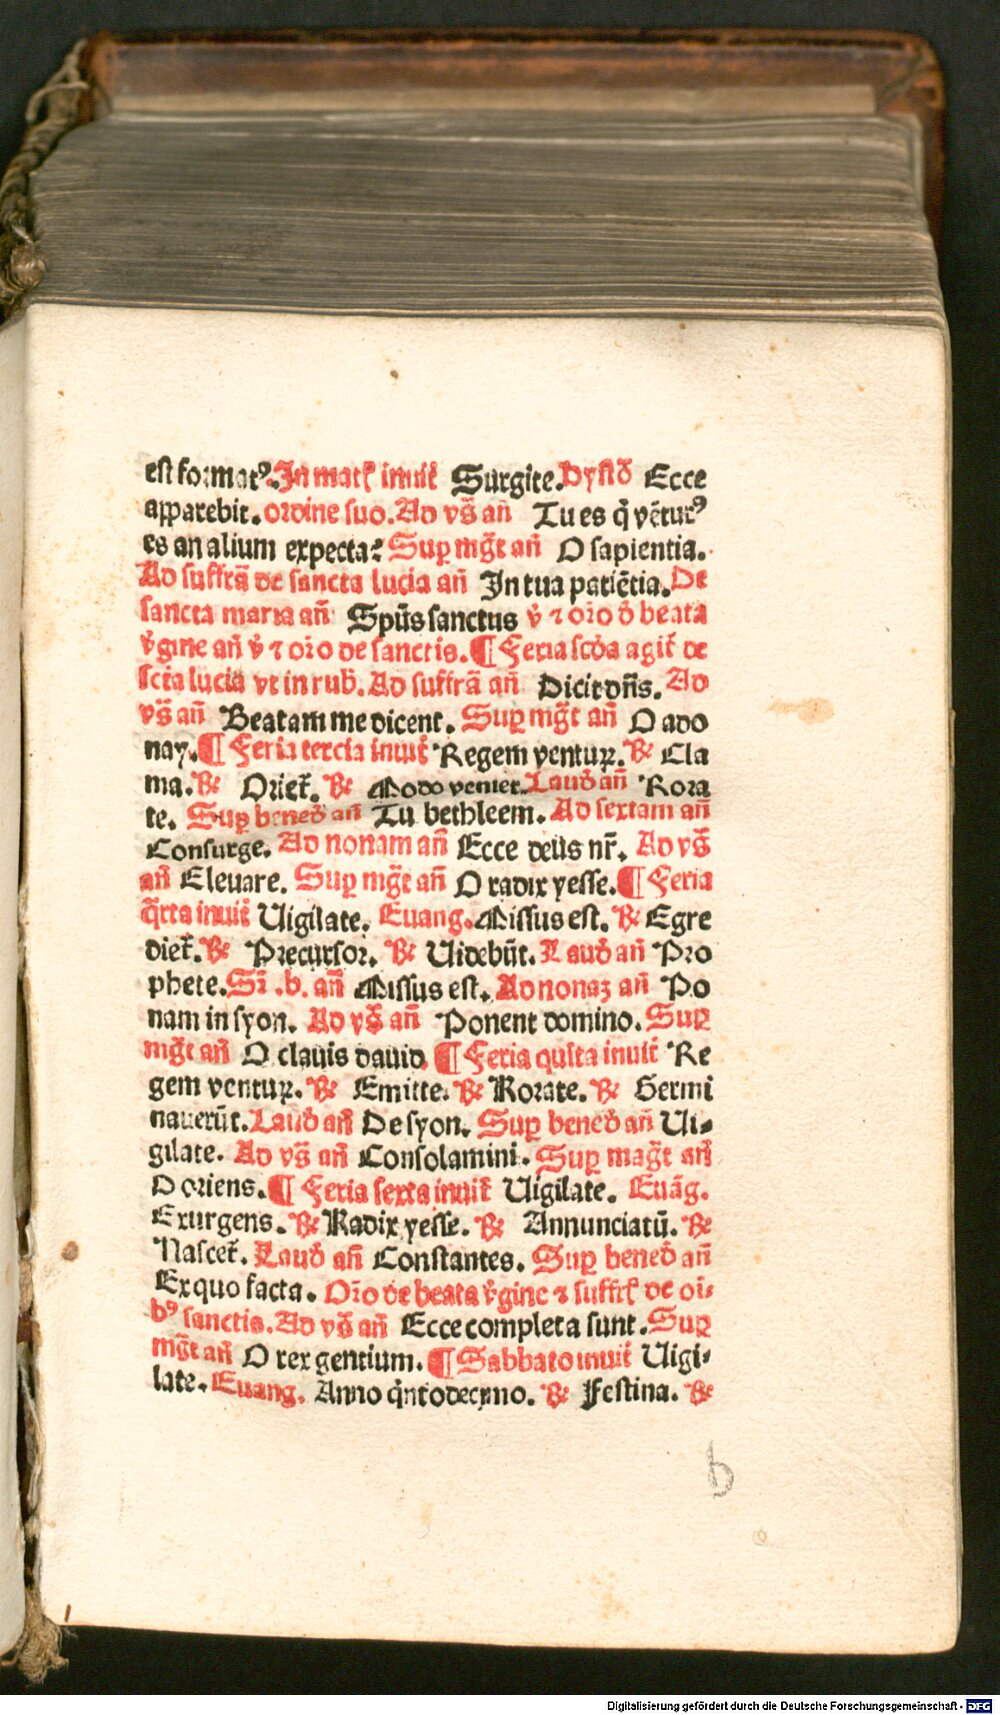 est formatꝰ. In matꝭ inuit̃ Surgite. Hystõ Ecce
apparebit. ordine suo. Ad vs̃ añ Tu es q̃ vẽturꝰ
es an alium expecta? Sup mg̃t añ O sapientia.
Ad suffrã de sancta lucia añ In tua patiẽtia. De
sancta maria añ Spũs sanctus v̾ ⁊ oro̅ d̾ beata
v̾gine añ v̾ ⁊ oro̅ de sanctis. ¶ Feria scd̾a agit̃ de
scta lucia vt in rub̾. Ad suffrã añ Dicit dñs. Ad
vs̃ añ Beatam me dicent. Sup mg̃t añ O ado
nay. ¶ Feria tercia inuit̃ Regem ventuꝝ. ℞ Cla
ma. ℞ Oriet̃. ℞ Modo veniet. Laud̾ añ Rora
te. Sup bened̾ añ Tu bethleem. Ad sextam añ
Consurge. Ad nonam añ Ecce deus nr̃. Ad vs̃
añ Eleuare. Sup mg̃t añ O radix yesse. ¶ Feria
q̃rta inuit̃ Uigilate. Euang. Missus est. ℞ Egre
diet̃. ℞ Precursor. ℞ Uidebũt. Laud̾ añ Pro
phete. Sr̃ .b. añ Missus est. Ad nonaꝫ añ Po
nam in syon. Ad vs̃ añ Ponent domino. Sup
mg̃t añ O clauis dauid ¶ Feria qu̅ta inuit̃ Re
gem ventuꝝ. ℞ Emitte. ℞ Rorate. ℞ Germi
nauerũt. Laud̾ añ De syon. Sup bened̾ añ Ui⸗
gilate. Ad vs̃ añ Consolamini. Sup mag̃t añ
O oriens. ¶ Feria sexta inuit̃ Uigilate. Euãg.
Exurgens. ℞ Radix yesse. ℞ Annunciatũ. ℞
Nascet̃. Laud̾ añ Constantes. Sup bened̾ añ
Ex quo facta. Oro̅ de beata v̾gine ⁊ suffrꝭ de oi⸗
bꝰ sanctis. Ad vs̃ añ Ecce completa sunt. Sup
mg̃t añ O rex gentium. ¶ Sabbato inuit̃ Uigi⸗
late. Euang. Anno q̃ntodecimo. ℞ Festina. ℞
b
Digitalisierung gefördert durch die Deutsche Forschungsgemeinschaft - DFG